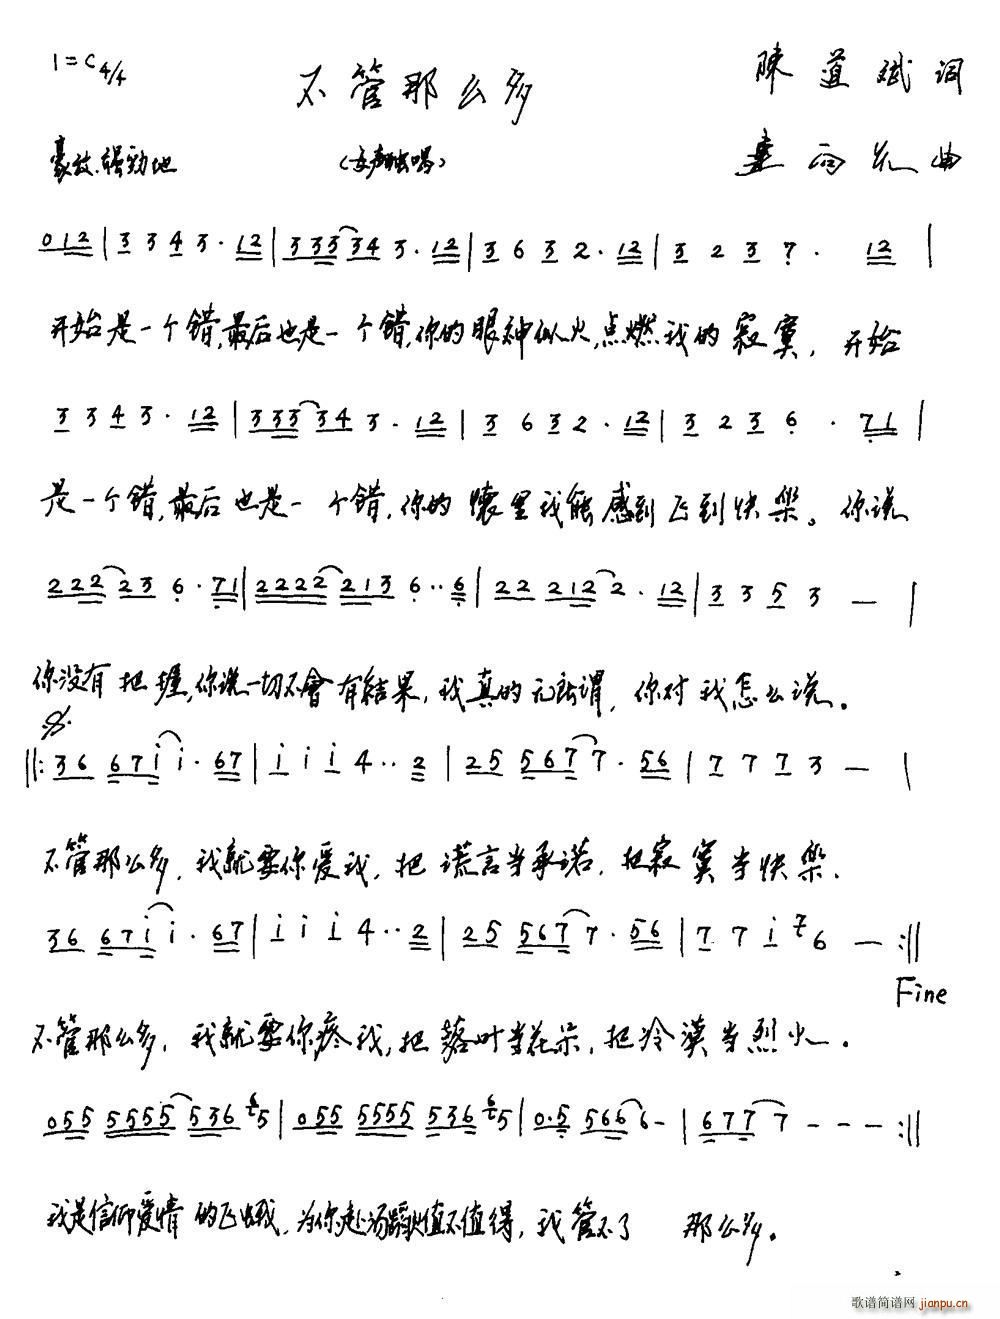 1=C 4/4
不管那么多
陳道斌词
豪放、强劲地
(女声独唱)
雨 曲
0 1 2 | 3 3 4 3 · 1 2 | 3 3 3 3 4 3 · 1 2 | 3 6 3 2 · 1 2 | 3 2 3 7 · 1 2 |
开始是一个错,最后也是一个错,你的眼神似火,点燃我的寂寞,开始
3 3 4 3 · 1 2 | 3 3 3 3 4 3 · 1 2 | 3 6 3 2 · 1 2 | 3 2 3 6 · 7 1 |
是一个错,最后也是一个错,你的懷里我能感到飞到快樂。你说
2 2 2 2 3 6 · 7 1 | 2 2 2 2 2 1 3 6 · · 6 | 2 2 2 1 2 2 · 1 2 | 3 3 5 3 — |
你没有把握,你说一切不會有结果,我真的无所谓,你对我怎么说。
||: 3 6 6 7 i i · 6 7 | i i i 4 · · 2 | 2 5 5 6 7 7 · 5 6 | 7 7 7 3 — |
不管那么多,我就要你爱我,把谎言当承诺,把寂寞当快樂.
3 6 6 7 i i · 6 7 | i i i 4 · · 2 | 2 5 5 6 7 7 · 5 6 | 7 7 i 7 6 — :||
Fine
不管那么多,我就要你疼我,把落叶当花朵,把冷漠当烈火.
0 5 5 5 5 5 5 5 3 6 6 5 | 0 5 5 5 5 5 5 5 3 6 6 5 | 0 · 5 5 6 6 6 - | 6 7 7 7 7 - - - :||
我是信仰爱情的飞蛾,为你赴汤蹈火值不值得,我管不了 那么多。
歌谱简谱网 jianpu.cn